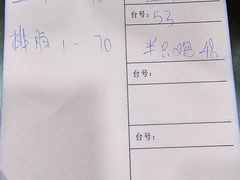 排股 1-70
台号: 53
半只鸡 48
台号:
台号: